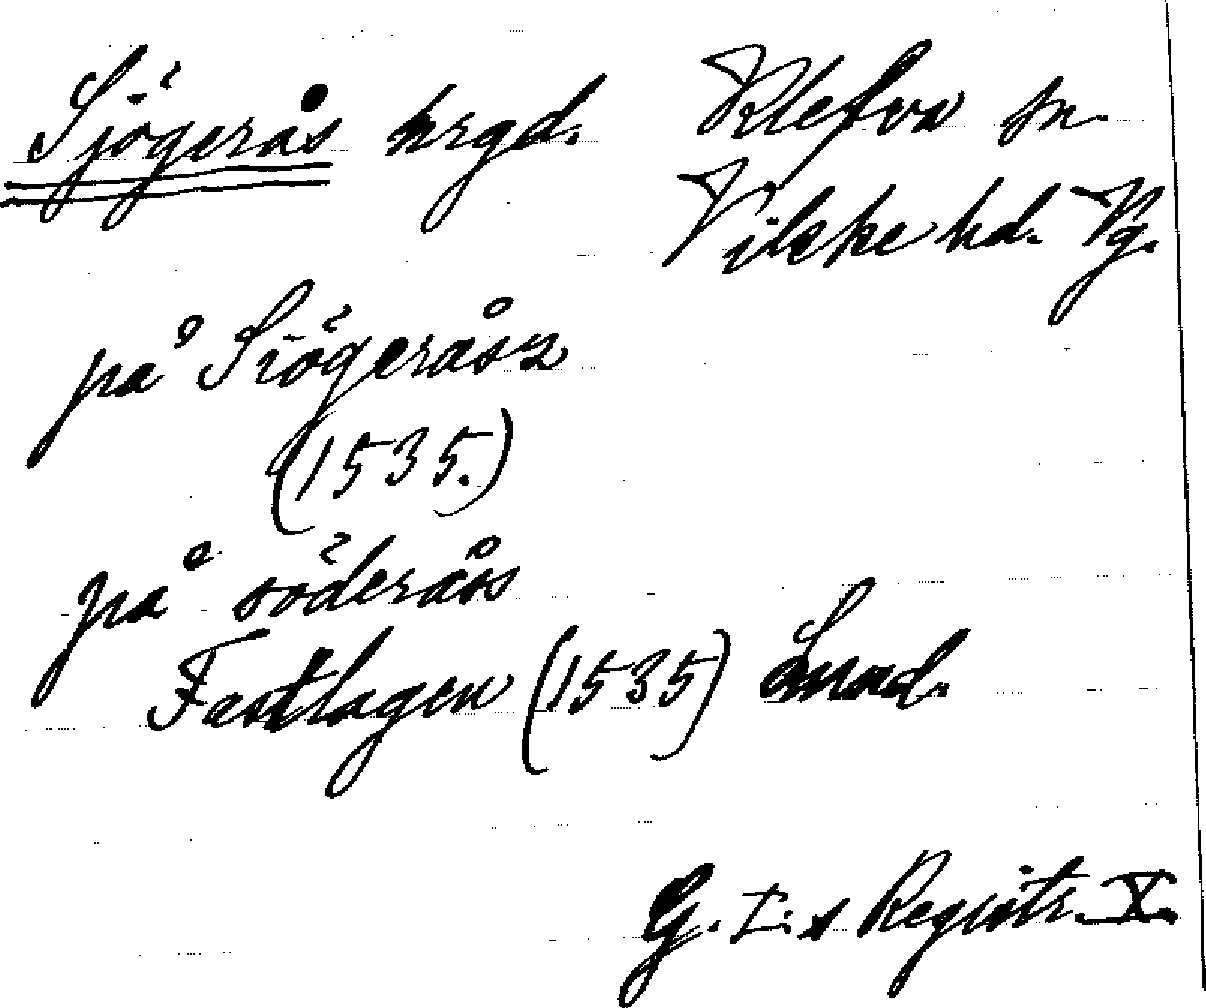 Sjögerås hrgd. Klefva sn.
Vilske hd. Vg.
på Siögeråsz
(1535.)
på söderåss
Fastlagen (1535)
G. I:s Registr. X.